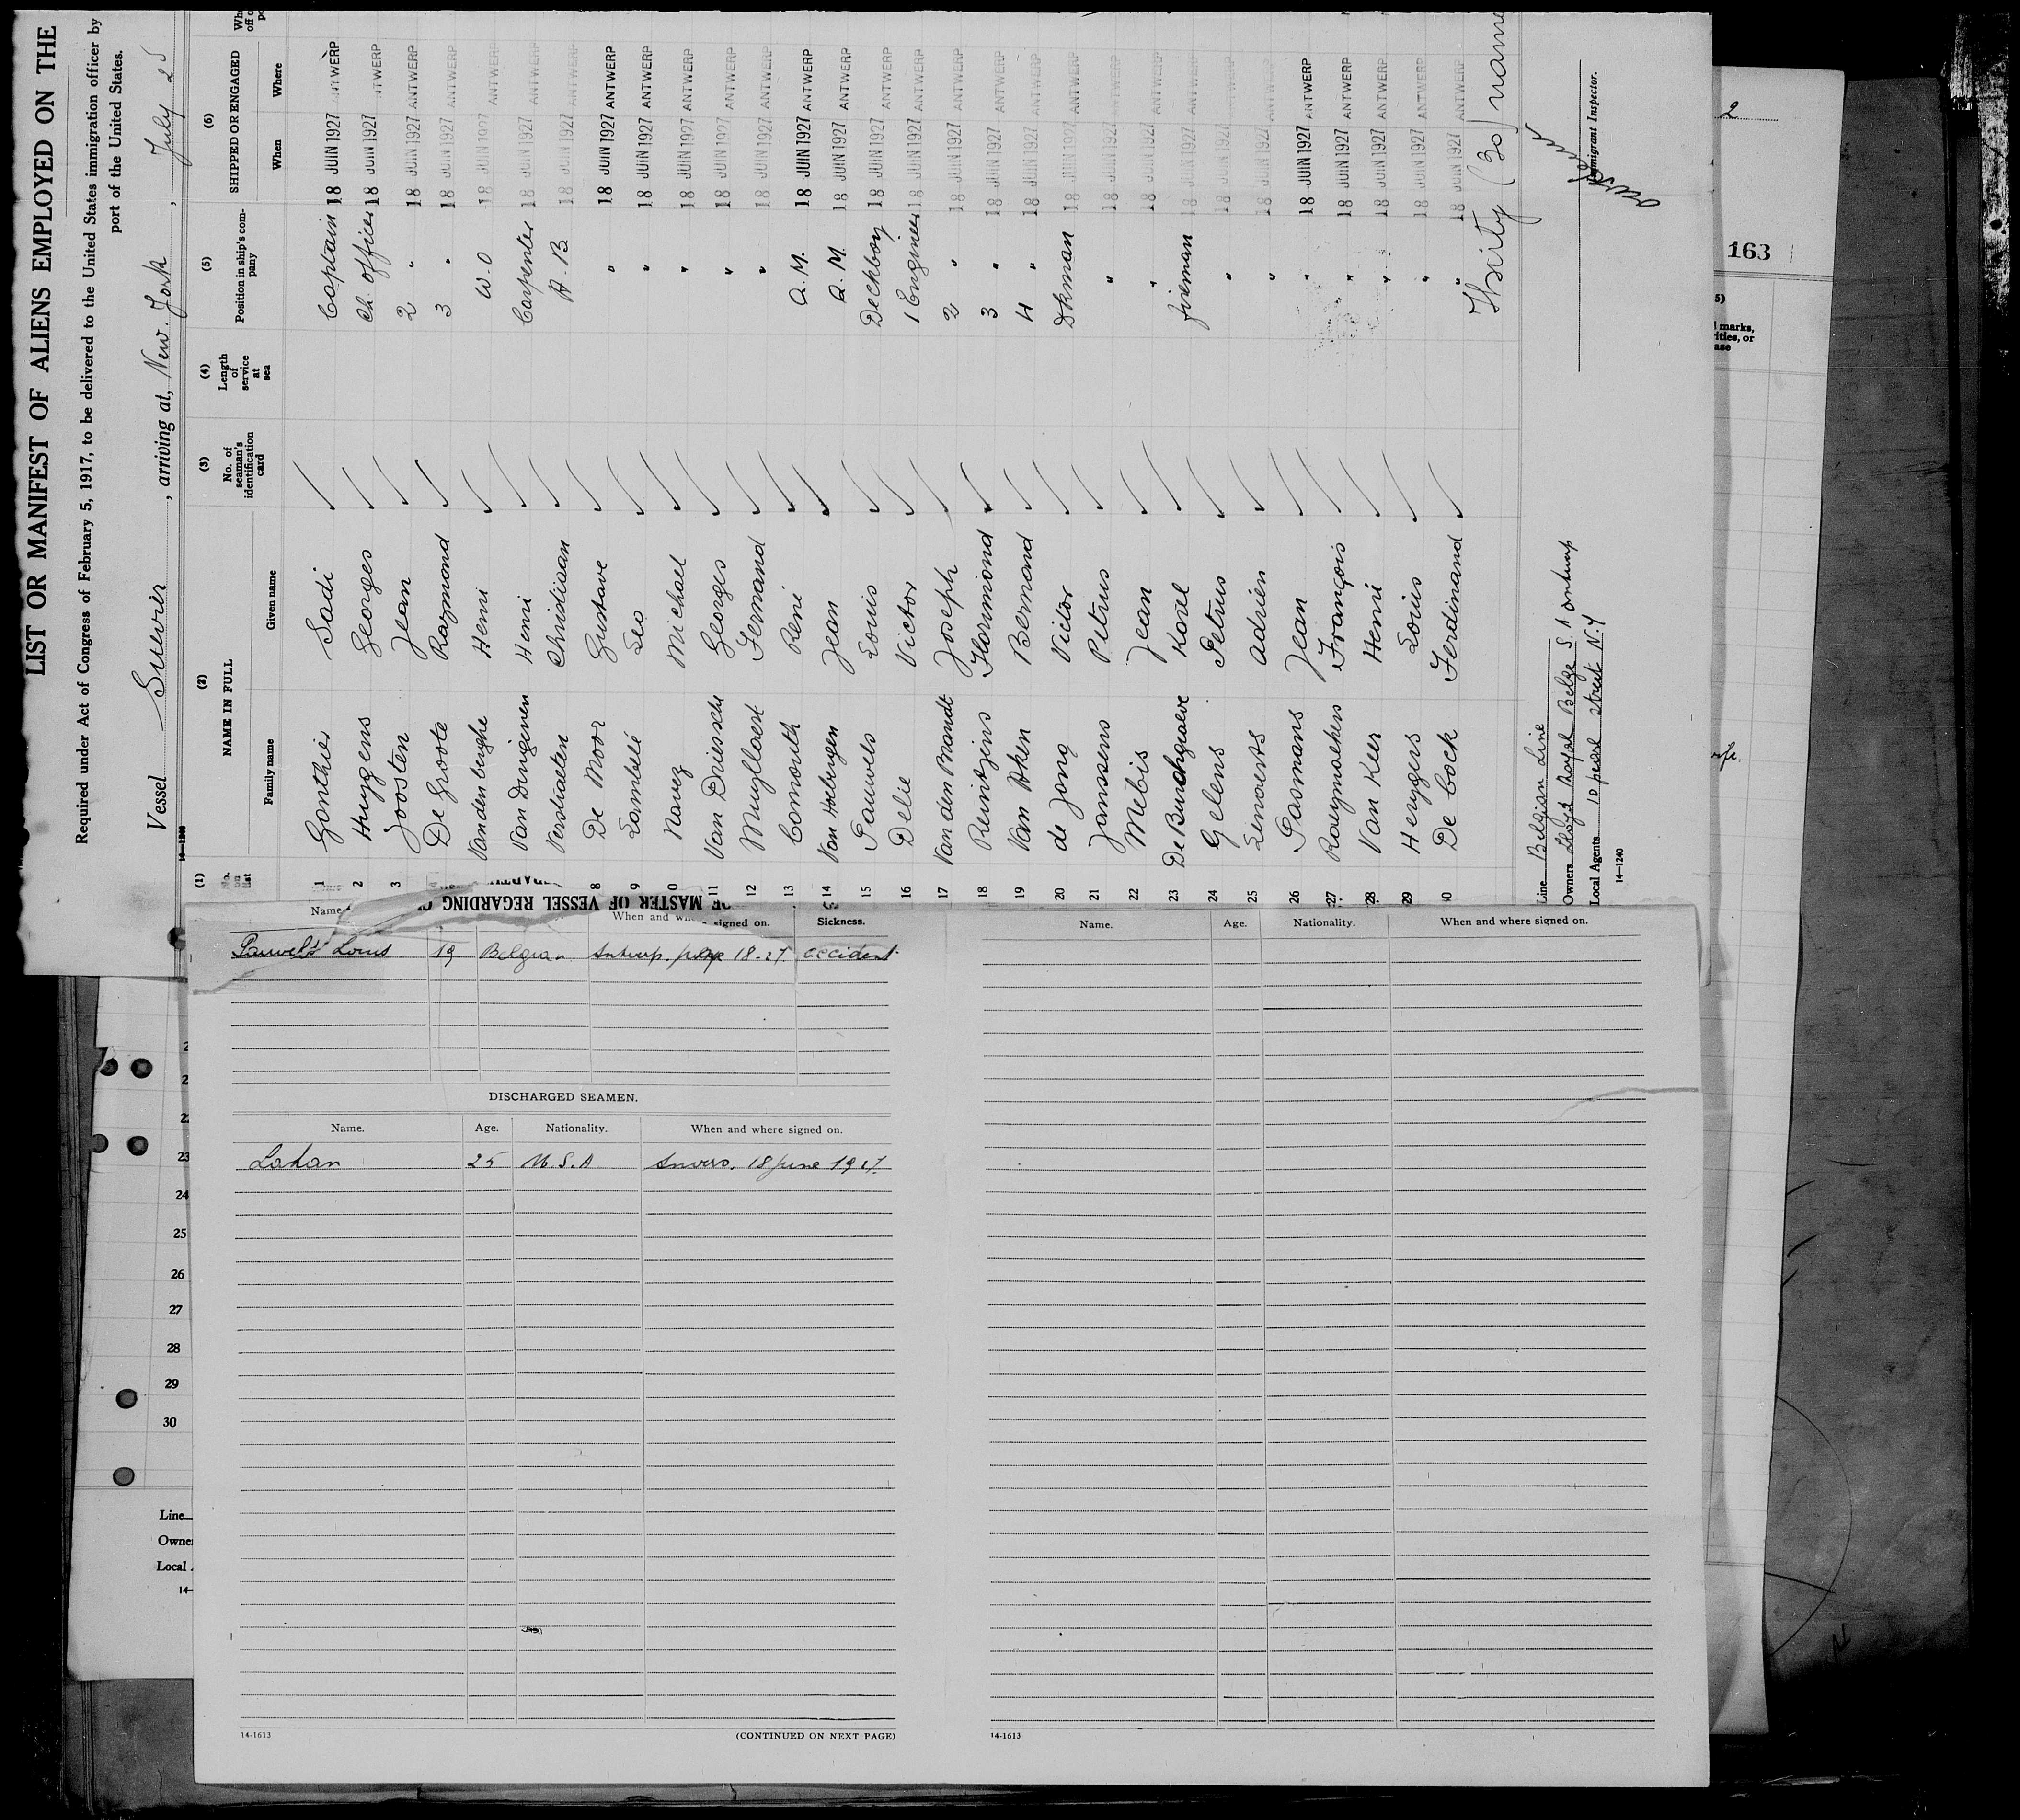 LIST OR MANIFEST OF ALIENS EMPLOYED ON THE
Required under Act of Congress of February 5, 1917, to be delivered to the United States immigration officer by
port of the United States.
Vessel , arriving at, New. York , July 25
(1) (2) (3) (4) (5) (6)
No. on list NAME IN FULL No. of seaman's identification card Length of service at sea Position in ship's company SHIPPED OR ENGAGED
Family name Given name When Where
1 Gonthier Sadi Captain 18 JUIN 1927 ANTWERP
2 Huygens Georges Ch. officer 18 JUIN 1927 ANTWERP
3 Joosten Jean 2 " 18 JUIN 1927 ANTWERP
De Groote Raymond 3 " 18 JUIN 1927 ANTWERP
Van den berghe Henri W. O 18 JUIN 1927 ANTWERP
Van Dingenen Henri Carpenter 18 JUIN 1927 ANTWERP
Verstraeten Christiaan A. B 18 JUIN 1927 ANTWERP
8 De Moor Gustave " 18 JUIN 1927 ANTWERP
9 Lambelé Leo " 18 JUIN 1927 ANTWERP
0 Navez Michael " 18 JUIN 1927 ANTWERP
11 Van Driessche Georges " 18 JUIN 1927 ANTWERP
12 Muyllaert Fernand " 18 JUIN 1927 ANTWERP
13 Comouth René Q. M. 18 JUIN 1927 ANTWERP
14 Van Holbergen Jean Q. M. 18 JUIN 1927 ANTWERP
15 Pauwels Louis Deckboy 18 JUIN 1927 ANTWERP
16 Delie Victor 1 Engineer 18 JUIN 1927 ANTWERP
17 Van den Brandt Joseph 2 " 18 JUIN 1927 ANTWERP
18 Reintjens Florimond 3 " 18 JUIN 1927 ANTWERP
19 Van Aken Bernard 4 " 18 JUIN 1927 ANTWERP
20 de Jong Victor Dkman 18 JUIN 1927 ANTWERP
21 Janssens Petrus " 18 JUIN 1927 ANTWERP
22 Mebis Jean " 18 JUIN 1927 ANTWERP
23 De Burchgraeve Karel fireman 18 JUIN 1927 ANTWERP
24 Gelens Petrus " 18 JUIN 1927 ANTWERP
25 Lenaerts Adrien " 18 JUIN 1927 ANTWERP
26 Pasmans Jean " 18 JUIN 1927 ANTWERP
27 Raeymaekers François " 18 JUIN 1927 ANTWERP
28 Van Keer Henri " 18 JUIN 1927 ANTWERP
29 Heugens Louis " 18 JUIN 1927 ANTWERP
30 De Cock Ferdinand " 18 JUIN 1927 ANTWERP
Thirty (30) names
Line Belgian Line
Owners Lloyd Royal Belge S. A Antwerp
Local Agents 10 pearl street N.Y
Immigrant Inspector.
14—1240
OF MASTER OF VESSEL REGARDING
Name When and signed on. Sickness.
Pauwels Louis 19 Belgian Antwerp June 18-27. accident.
DISCHARGED SEAMEN.
Name. Age. Nationality. When and where signed on.
Lahan 25 U.S.A Anvers. 18 June 1927.
14-1613
(CONTINUED ON NEXT PAGE)
Name. Age. Nationality. When and where signed on.
14-1613
23
24
25
26
27
28
29
30
Line
Owne
Local
14-
2
163
marks,